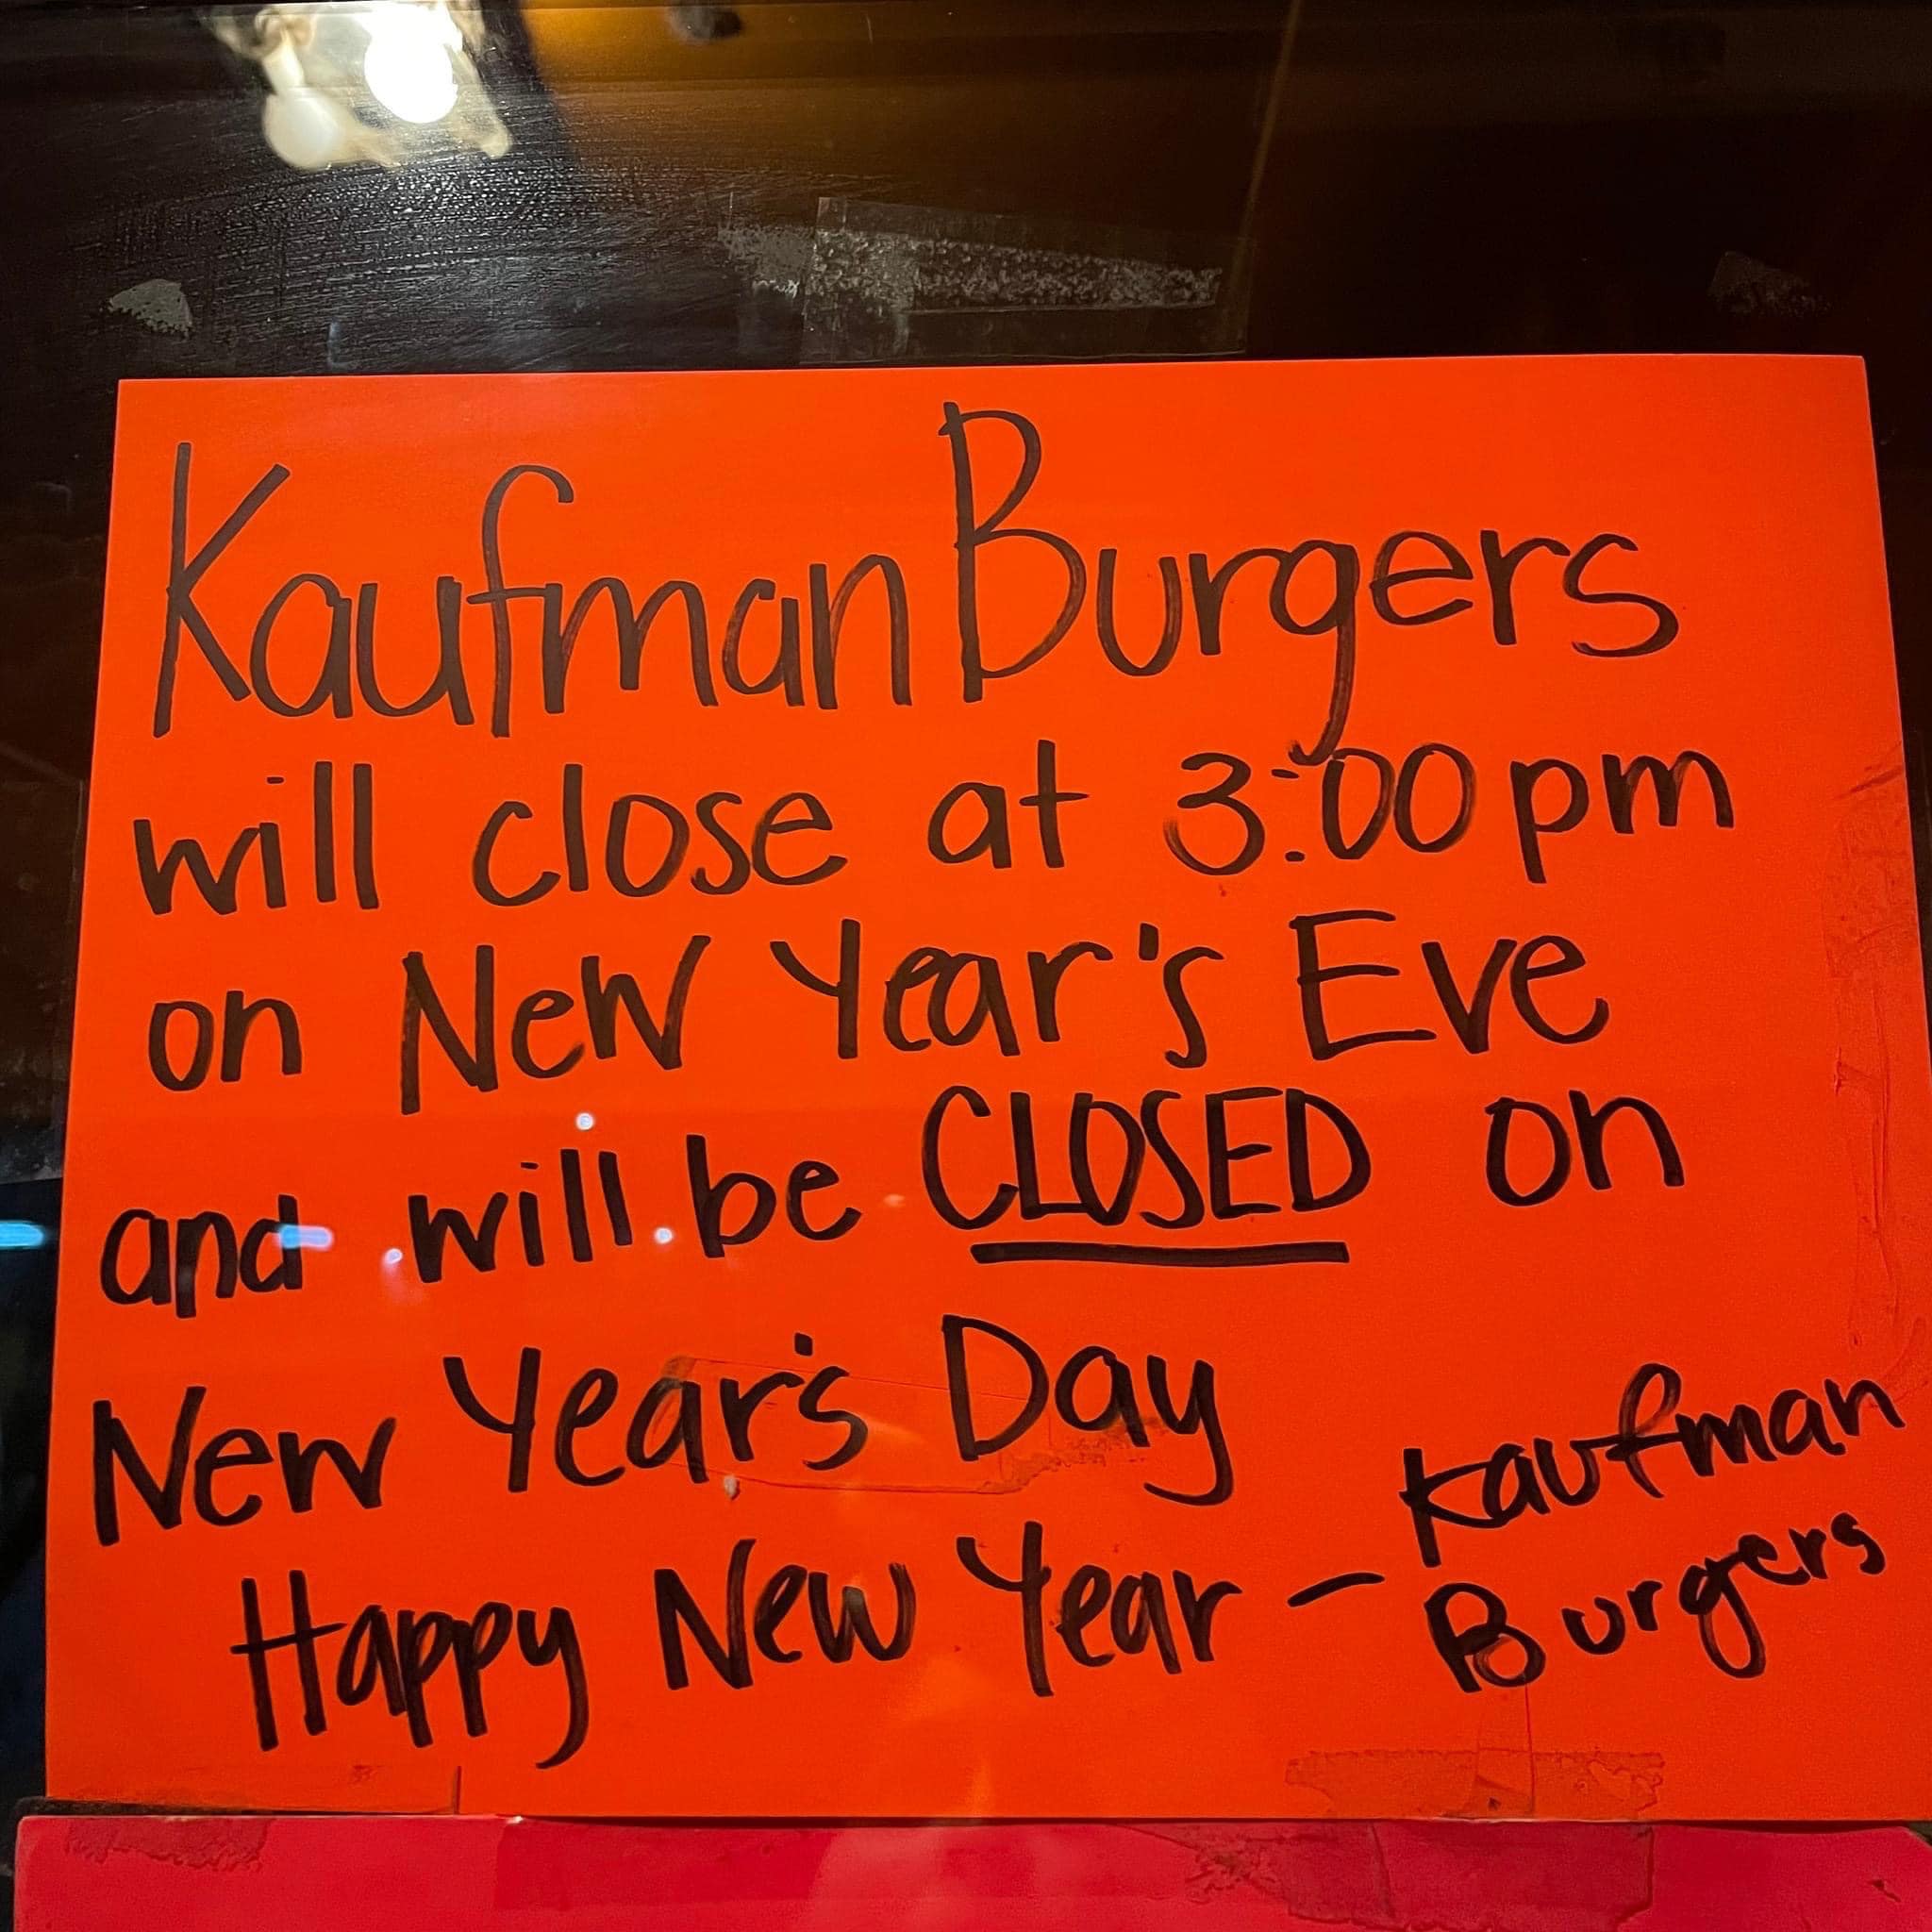 Kaufman Burgers
will close at 3:00 pm
on New Year's Eve
and will be CLOSED on
New Year's Day
Happy New Year - Kaufman
Burgers